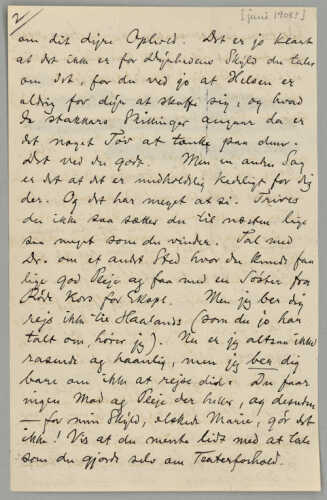 2/
[juni 1908?]
om dit dyre Ophold. Det er jo klart
at det ikke er for Dyrhedens Skyld du taler
om det, for du ved jo at Helsen er
aldrig for dyr at skaffe sig, og hvad
de stakkars Skillinger angaar da er
det noget Tøv at tænke paa dem.
Det ved du godt. Men en anden Sag
er det at det er umholdelig kedeligt for dig
der. Og det har meget at si. Trives
du ikke saa sætter du til næsten lige
saa meget som du vinder. Tal med
Dr. om et andet Sted hvor du kunde faa
lige god Pleje og faa med en Søster fra
Røde Kors for Eksempel. Men jeg ber dig
rejs ikke til Haalands (som du jo har
talt om, hører jeg). Nu er jeg altsaa ikke
rasende og haanlig, men jeg ber dig
bare om ikke at rejse did. Du faar
ingen Mad og Pleje der heller, og desuden
— for min Skyld, elskede Marie, gør det
ikke! Vis at du mente lidt med at tale
som du gjorde selv om Teaterforhold.